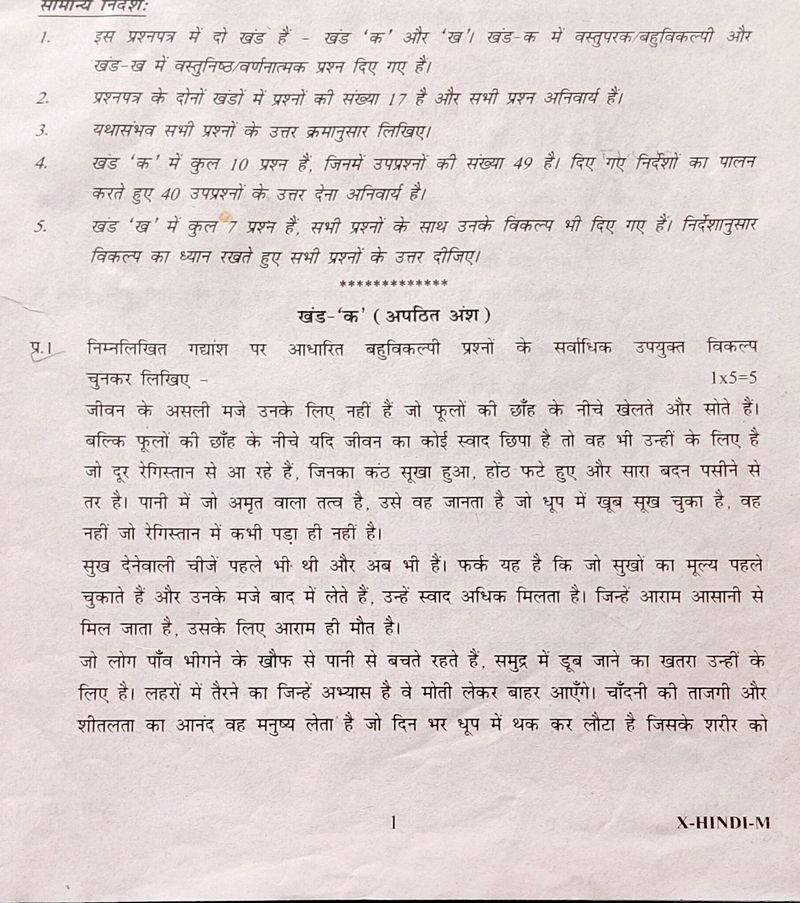 सामान्य निर्देशः
1. इस प्रश्नपत्र में दो खंड हैं - खंड ‘क’ और ‘ख’। खंड-क में वस्तुपरक/बहुविकल्पी और
खंड-ख में वस्तुनिष्ठ/वर्णनात्मक प्रश्न दिए गए हैं।
2. प्रश्नपत्र के दोनों खंडों में प्रश्नों की संख्या 17 है और सभी प्रश्न अनिवार्य हैं।
3. यथासंभव सभी प्रश्नों के उत्तर क्रमानुसार लिखिए।
4. खंड ‘क’ में कुल 10 प्रश्न हैं, जिनमें उपप्रश्नों की संख्या 49 है। दिए गए निर्देशों का पालन
करते हुए 40 उपप्रश्नों के उत्तर देना अनिवार्य है।
5. खंड ‘ख’ में कुल 7 प्रश्न हैं, सभी प्रश्नों के साथ उनके विकल्प भी दिए गए हैं। निर्देशानुसार
विकल्प का ध्यान रखते हुए सभी प्रश्नों के उत्तर दीजिए।
*************
खंड-‘क’ ( अपठित अंश )
प्र.1 निम्नलिखित गद्यांश पर आधारित बहुविकल्पी प्रश्नों के सर्वाधिक उपयुक्त विकल्प
चुनकर लिखिए - 1x5=5
जीवन के असली मजे उनके लिए नहीं हैं जो फूलों की छाँह के नीचे खेलते और सोते हैं।
बल्कि फूलों की छाँह के नीचे यदि जीवन का कोई स्वाद छिपा है तो वह भी उन्हीं के लिए है
जो दूर रेगिस्तान से आ रहे हैं, जिनका कंठ सूखा हुआ, होंठ फटे हुए और सारा बदन पसीने से
तर है। पानी में जो अमृत वाला तत्व है, उसे वह जानता है जो धूप में खूब सूख चुका है, वह
नहीं जो रेगिस्तान में कभी पड़ा ही नहीं है।
सुख देनेवाली चीजें पहले भी थी और अब भी हैं। फर्क यह है कि जो सुखों का मूल्य पहले
चुकाते हैं और उनके मजे बाद में लेते हैं, उन्हें स्वाद अधिक मिलता है। जिन्हें आराम आसानी से
मिल जाता है, उसके लिए आराम ही मौत है।
जो लोग पाँव भीगने के खौफ से पानी से बचते रहते हैं, समुद्र में डूब जाने का खतरा उन्हीं के
लिए है। लहरों में तैरने का जिन्हें अभ्यास है वे मोती लेकर बाहर आएँगे। चाँदनी की ताजगी और
शीतलता का आनंद वह मनुष्य लेता है जो दिन भर धूप में थक कर लौटा है जिसके शरीर को
1 X-HINDI-M